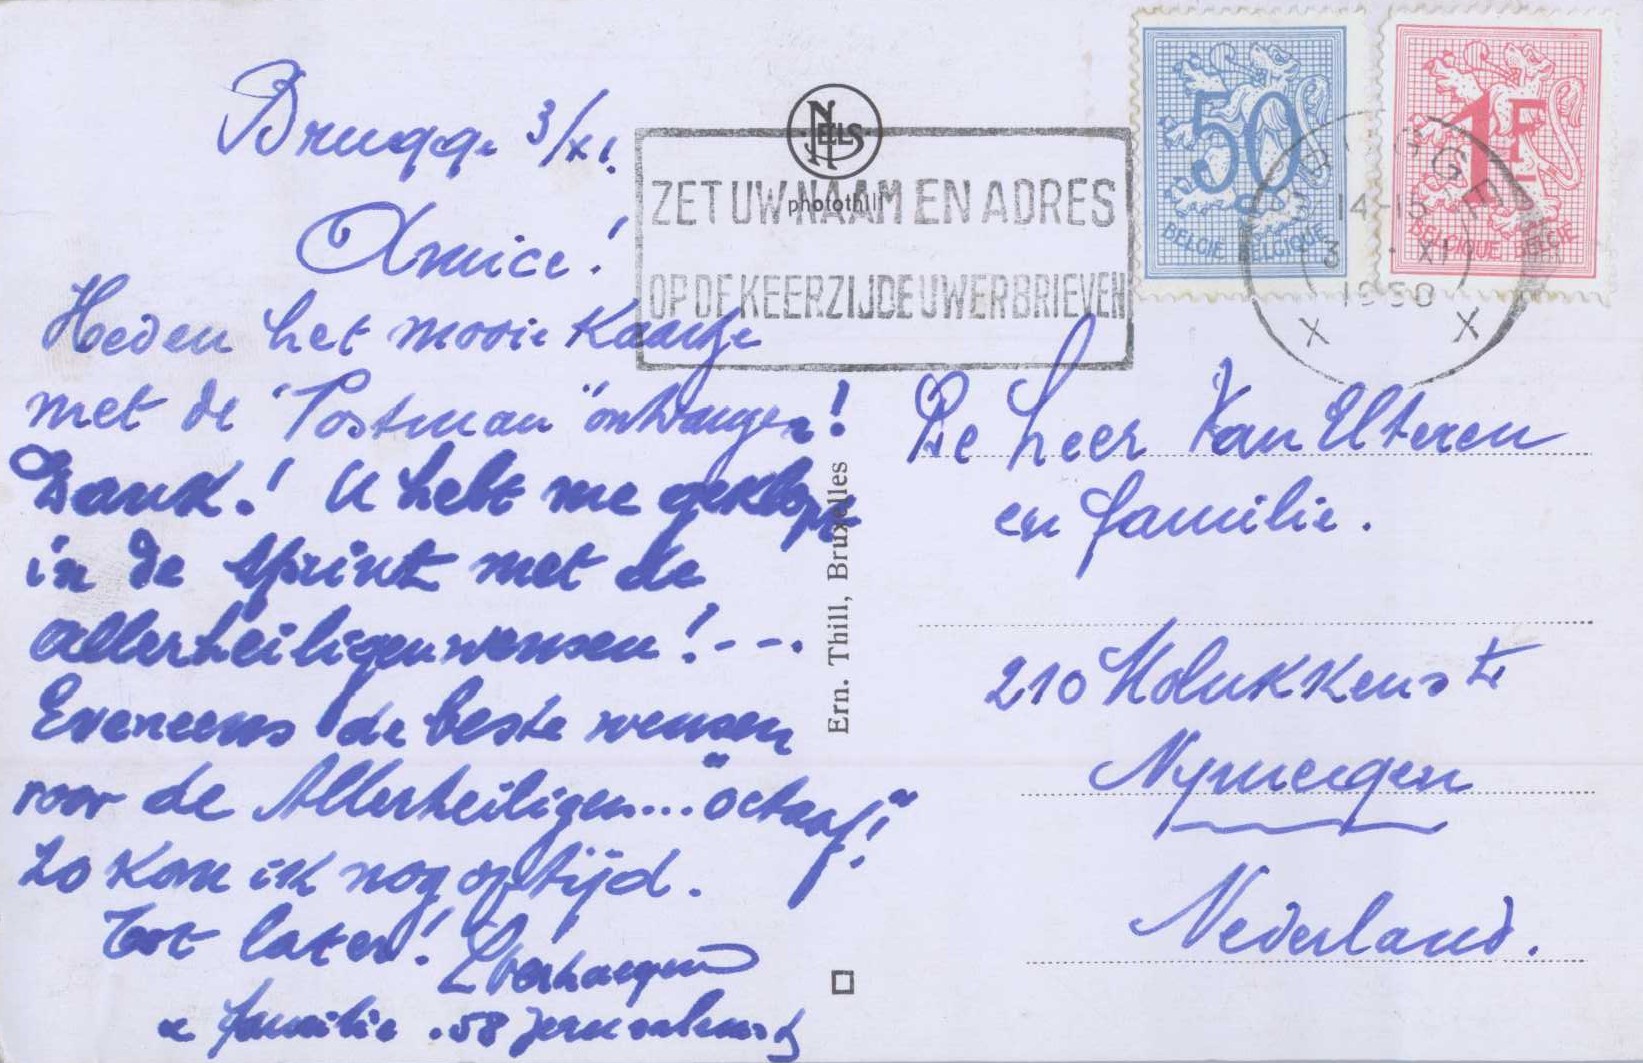 Brugge 3/XI.
Amice!
Heden het mooie Kaartje
met de "Postman" ontvangen!
Dank! U hebt me geklopt
in de sprint met de
allerheiligenwensen! ---.
Eveneens de beste wensen
voor de Allerheiligen... "octaaf"!
Zo kom ik nog op tijd.
Tot later!
en familie . 58 Jeruzalemst
NELS
photothill
ZET UW NAAM EN ADRES
OP DE KEERZIJDE UWER BRIEVEN
50
BELGIE BELGIQUE
1F
BELGIQUE BELGIE
BRUGGE
14-15
3 - XI
1950
X X
Ern. Thill, Bruxelles
De heer Van Elteren
en familie.
210 Molukkenstr
Nymegen
Nederland.